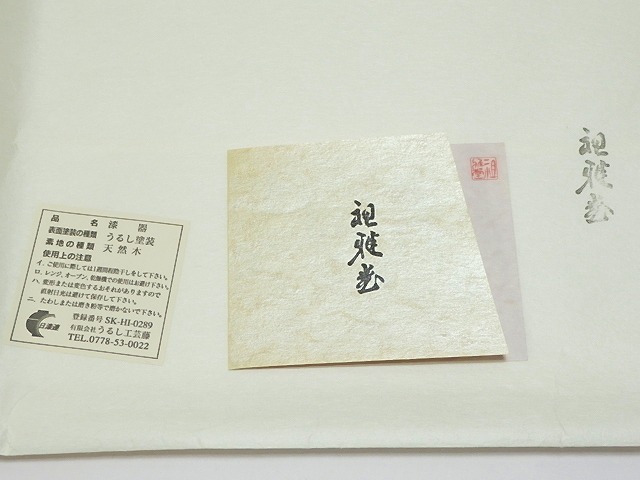 品名 漆器
表面塗装の種類 うるし塗装
素地の種類 天然木
使用上の注意
イ、ご使用に際しては1週間程陰干しをして下さい。
ロ、レンジ、オーブン、乾燥機での使用はお避け下さい。
ハ、変形または変色するおそれがありますので
直射日光は避けて保存して下さい。
ニ、たわしまたは磨き粉等で磨かないで下さい。
日漆連
登録番号 SK-HI-0289
有限会社 うるし工芸藤
TEL.0778-53-0022
祖雅堂
祖雅堂